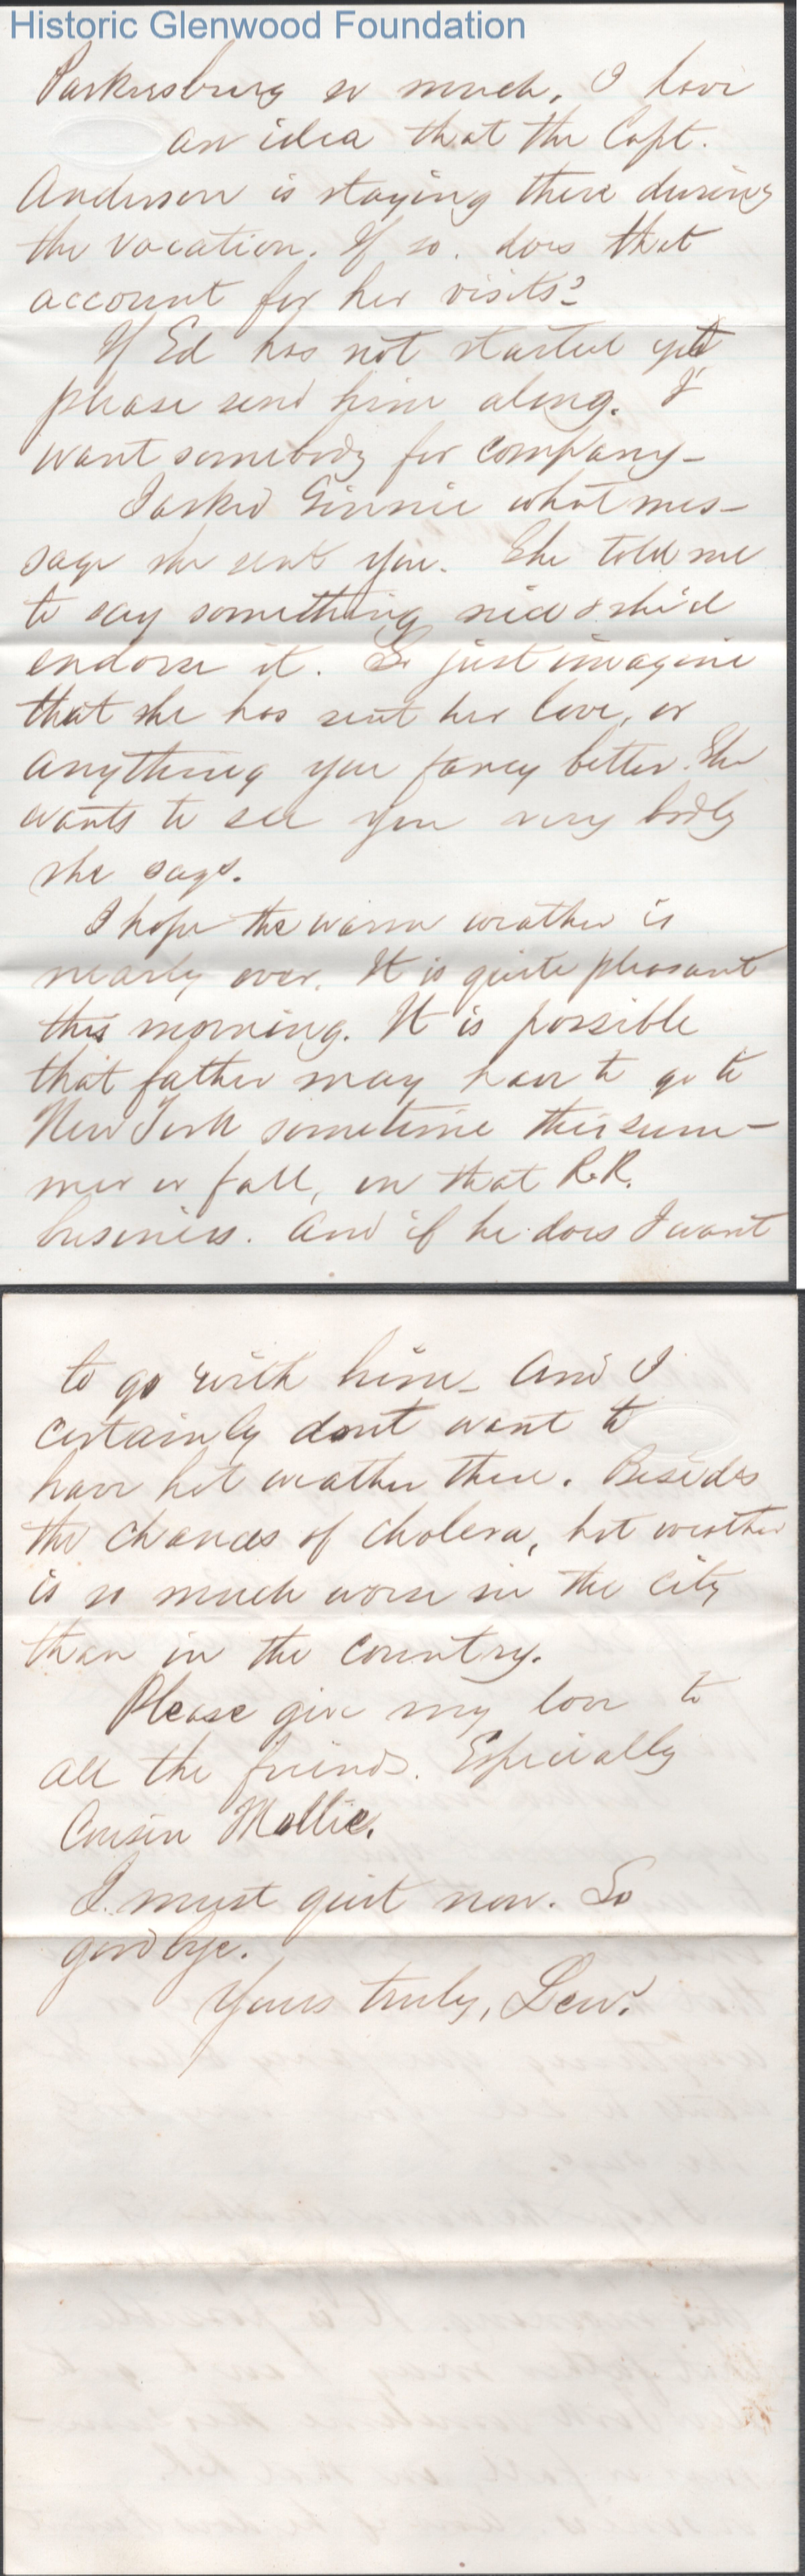 Historic Glenwood Foundation
Parkersburg so much. I have
an idea that the Capt.
Anderson is staying there during
the vacation. If so. does that
account for her visits?
If Ed has not started yet
please send him along. I
want somebody for company-
I asked Ginnie what mes-
sage she sent you. She told me
to say something nice & she'd
endorse it. So just imagine
that she has sent her love, or
anything you fancy better. She
wants to see you very badly
she says.
I hope the warm weather is
nearly over. It is quite pleasant
this morning. It is possible
that father may have to go to
New York sometime this sum-
mer or fall, on that R.R.
business. And if he does I want
to go with him- And I
certainly dont want to
have hot weather then. Besides
the chances of cholera, hot weather
is so much worse in the city
than in the country.
Please give my love to
all the friends. Especially
Cousin Mollie.
I must quit now. So
good bye.
Yours truly, Lew.